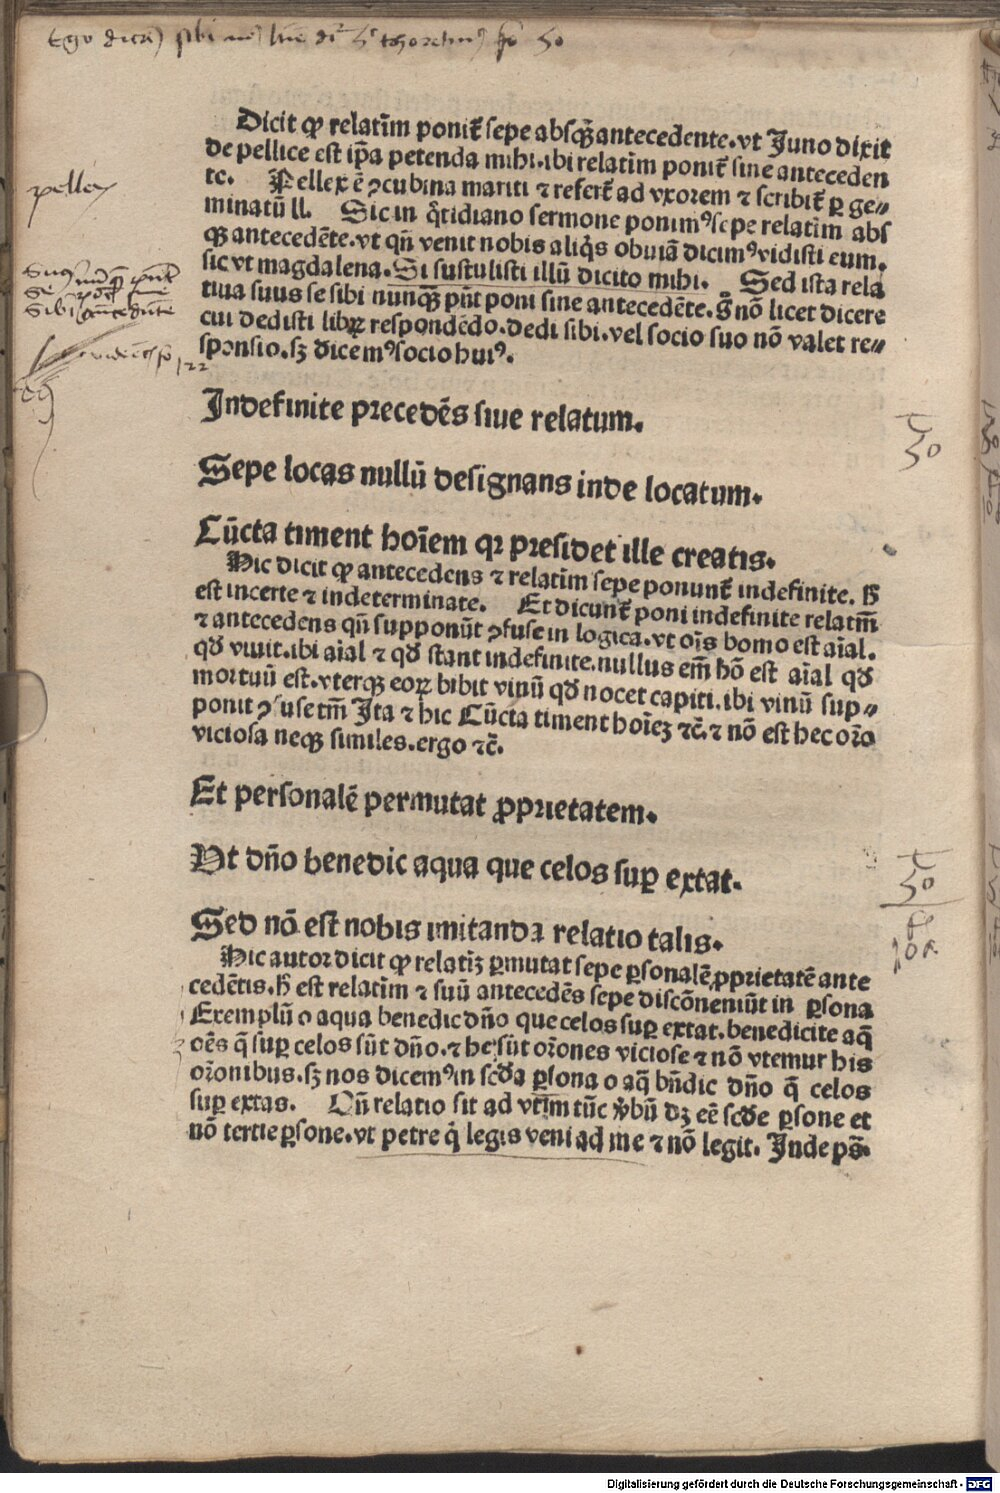 Ego dicā sibi
Dicit ꝙ relatīm poniť sepe absqꝫ antecedente. vt Juno dixit
de pellice est ip̄a petenda mihi. ibi relatim poniť sine anteceden
te. Pellex ē ꝯcubina mariti ⁊ referť ad vxorem ⁊ scribiť ꝑ ge⸗
minatū ll. Sic in q̄tidiano sermone ponimꝰ sepe relatim abs
qꝫ antecedēte. vt qn̄ venit nobis aliq̇s obuiā dicimꝰ vidisti eum.
sic vt magdalena. Si sustulisti illū dicito mihi. Sed ista rela
tiua suus se sibi nunqꝫ pn̄t poni sine antecedēte. g̊ nō licet dicere
cui dedisti libꝝ respondēdo. dedi sibi. vel socio suo nō valet re⸗
sponsio. sꝫ dicemꝰ socio huiꝰ.
pellex
Sibi
Indefinite precedēs siue relatum.
Sepe locas nullū designans inde locatum.
Cūcta timent hoīem qꝛ presidet ille creatis.
Hic dicit ꝙ antecedens ⁊ relatīm sepe ponunť indefinite. h̄
est incerte ⁊ indeterminate. Et dicunť poni indefinite relatm̄
⁊ antecedens qn̄ supponūt ꝯfuse in logica. vt oīs homo est aīal.
qd̄ viuit. ibi aīal ⁊ qd̄ stant indefinite. nullus em̄ hō est aīal qd̄
mortuū est. vterqꝫ eoꝝ bibit vinū qd̄ nocet capiti. ibi vinū sup⸗
ponit ꝯfuse tm̄ Ita ⁊ hic Cūcta timent hoīeꝫ ⁊c̄. ⁊ nō est hec or̄o
viciosa neqꝫ similes. ergo ⁊c̄.
Et personalē permutat ꝓprietatem.
Vt dn̄o benedic aqua que celos suꝑ extat.
Sed nō est nobis imitanda relatio talis.
Hic autor dicit ꝙ relatīꝫ ꝑmutat sepe ꝑsonalē ꝓprietatē ante
cedētis. h̄ est relatīm ⁊ suū antecedēs sepe discōueniūt in ꝑsona
Exemplū o aqua benedic dn̄o que celos suꝑ extat. benedicite aq̄
oēs q̄ suꝑ celos sūt dn̄o. ⁊ he sūt or̄ones viciose ⁊ nō vtemur his
or̄onibus. sꝫ nos dicemꝰ in scd̄a ꝑsona o aq̄ bn̄dic dn̄o q̄ celos
suꝑ extas. Qn̄ relatio sit ad vt̄im tūc v̊bū dꝫ eē scd̄e ꝑsone et
nō tertie ꝑsone. vt petre q̇ legis veni ad me ⁊ nō legit. Inde ps̄.
Digitalisierung gefördert durch die Deutsche Forschungsgemeinschaft - DFG